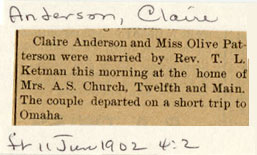 Anderson, Claire
Claire Anderson and Miss Olive Pat-
terson were married by Rev. T. L.
Ketman this morning at the home of
Mrs. A.S. Church, Twelfth and Main.
The couple departed on a short trip to
Omaha.
11 June 1902 4:2